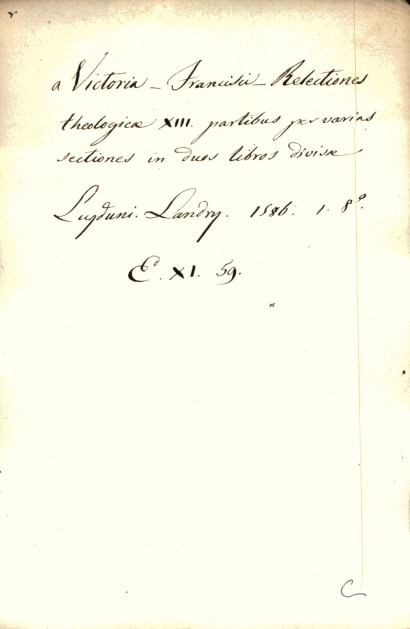 a Victoria _ Francisci _ Relectiones
theologicæ XIII. partibus per varias
sectiones in duos libros divisæ
Lugduni. Landry. 1586. 1. 8º.
E^d. XI. 59.
C